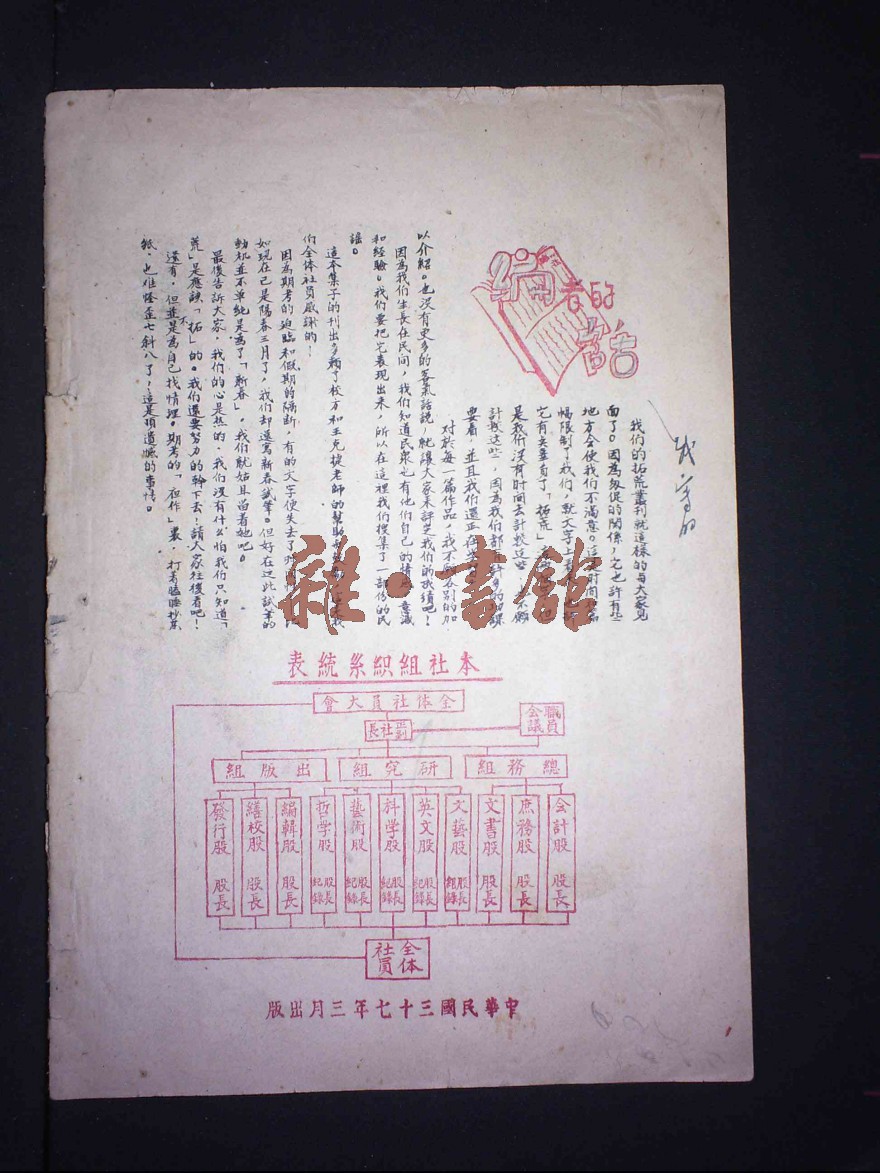 編者的話
我們的拓荒叢刊就這樣的與大家見
面了。因為級促的關係，它也許有些
地方会使我們不滿意。這是時间和篇
幅限制了我們，就文字上
它有失辜負了「拓荒」
是我們沒有时间去計較這些
計較這些，因為我們都有許多的功課
要看，並且我們還正在
对於每一篇作品，我不願各別的加
以介紹。也沒有更多的客氣話說，就讓大家来評定我們的成績吧！
因為我們生長在民间，我們知道民衆也有他們自己的情感、意識
和經驗。我們要把它表現出来，所以在這裡我們搜集了一部份的民
謠。
這本集子的刊出多賴了校方和王克捷老師的幫助
們全体社員感謝的！
因為期考的迫臨和假期的隔断，有的文字使失去了時
如現在已是陽春三月了，我們却還寫新春試筆。但好在这此試筆的
動机並不单纯是為了「新春」，我們就姑且留着她吧。
最後告訴大家，我們的心是热的，我們沒有什么怕我們只知道「
荒」是應該「拓」的。我們還要努力的幹下去！請大家往後看吧！
還有，但並不是為自己找情理。期考的「夜作」裏，打着瞌睡抄蒸
紙，也难怪歪七斜八了，這是頂遺憾的事情。
雜·書館
本社組織系統表
全体社員大會
正副社長
職員会議
總務組
研究組
出版組
会計股 股長
庶務股 股長
文書股 股長
文藝股 股長 紀錄
英文股 股長 紀錄
科学股 股長 紀錄
藝術股 股長 紀錄
哲学股 股長 紀錄
編輯股 股長
繕校股 股長
發行股 股長
全体社員
中華民國三十七年三月出版